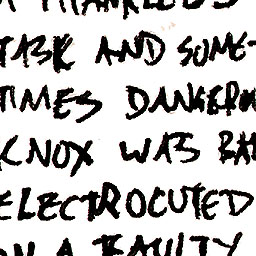 A THANKLESS
TASK AND SOME-
TIMES DANGEROU
KNOX WAS BA
ELECTROCUTED
ON A FAULTY